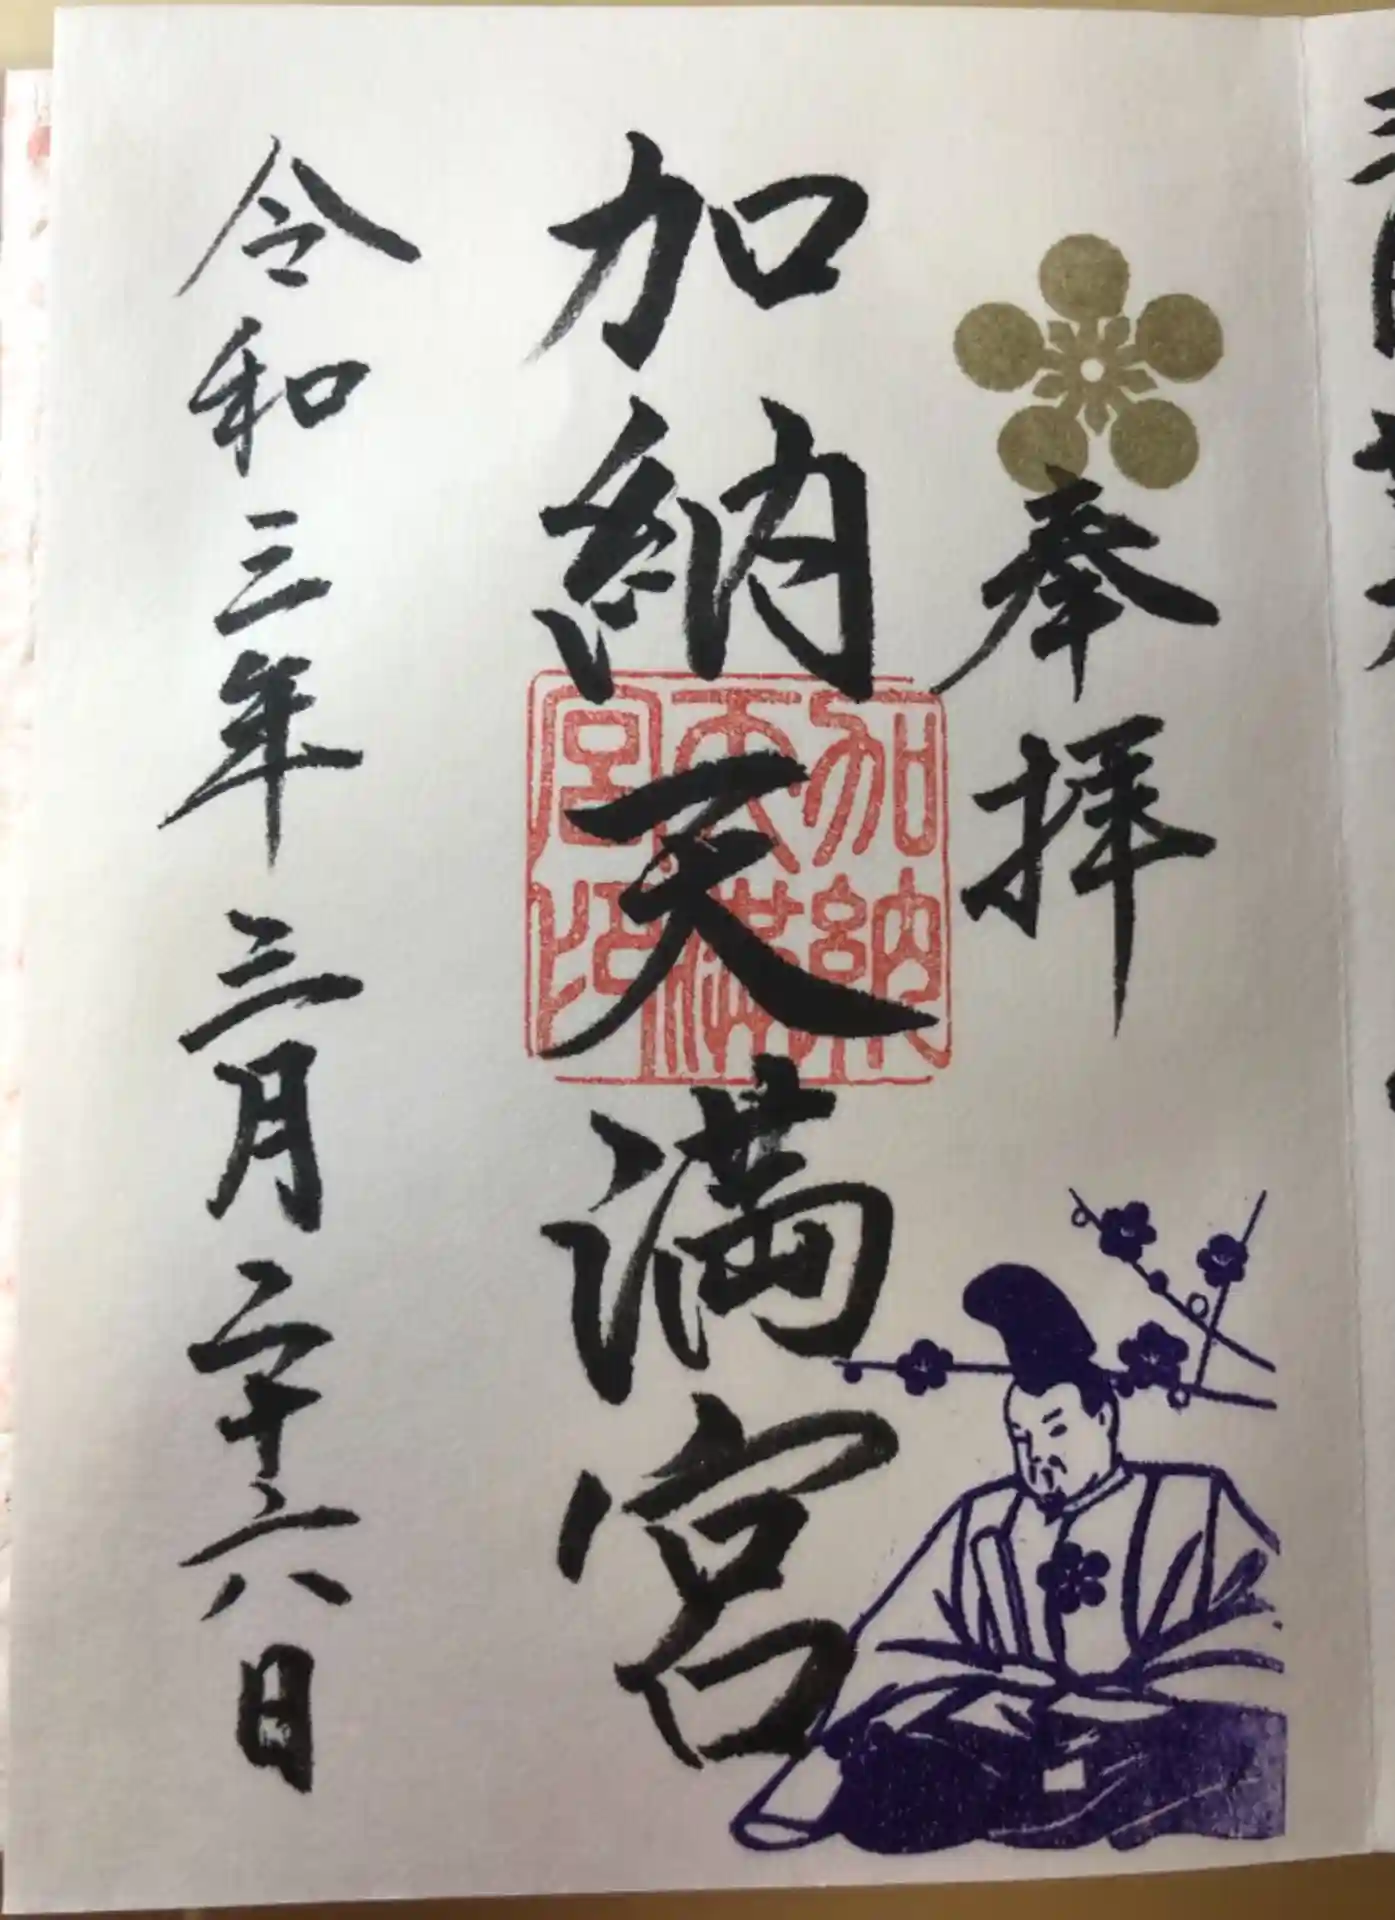 奉拝
加納天満宮
加納天満宮印
令和三年三月二十六日